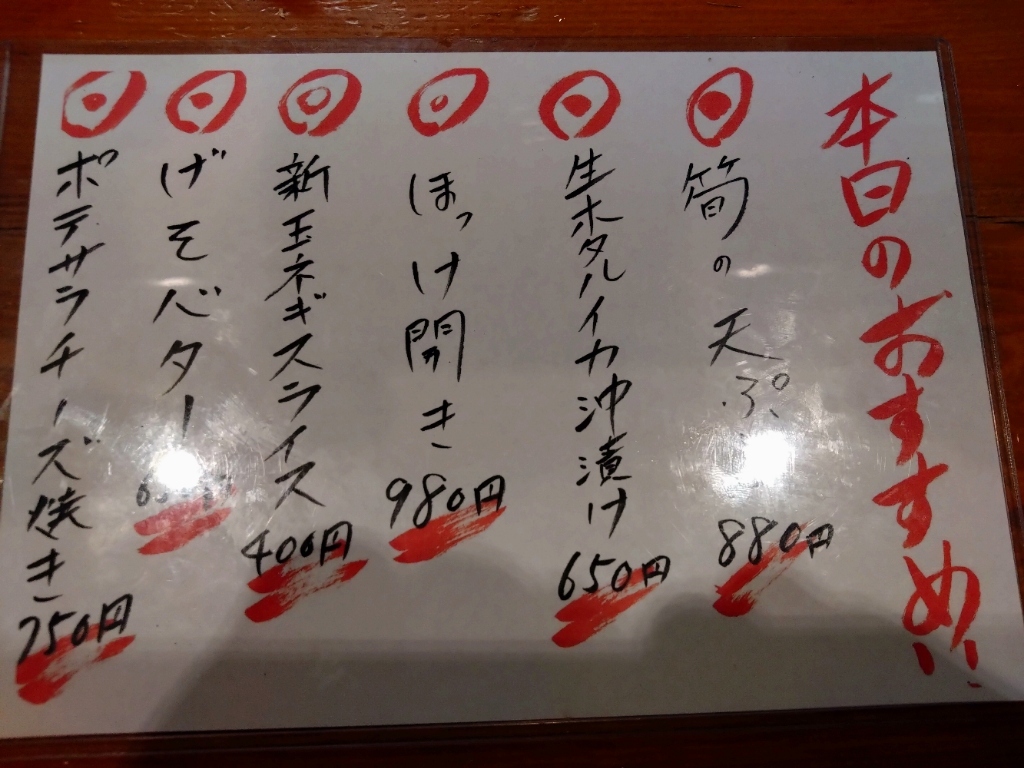 本日のおすすめ!!
筍の天ぷら
880円
生ホタルイカ沖漬け
650円
ほっけ開き
980円
新玉ネギスライス
400円
げそバター
ポテサラチーズ焼き
750円